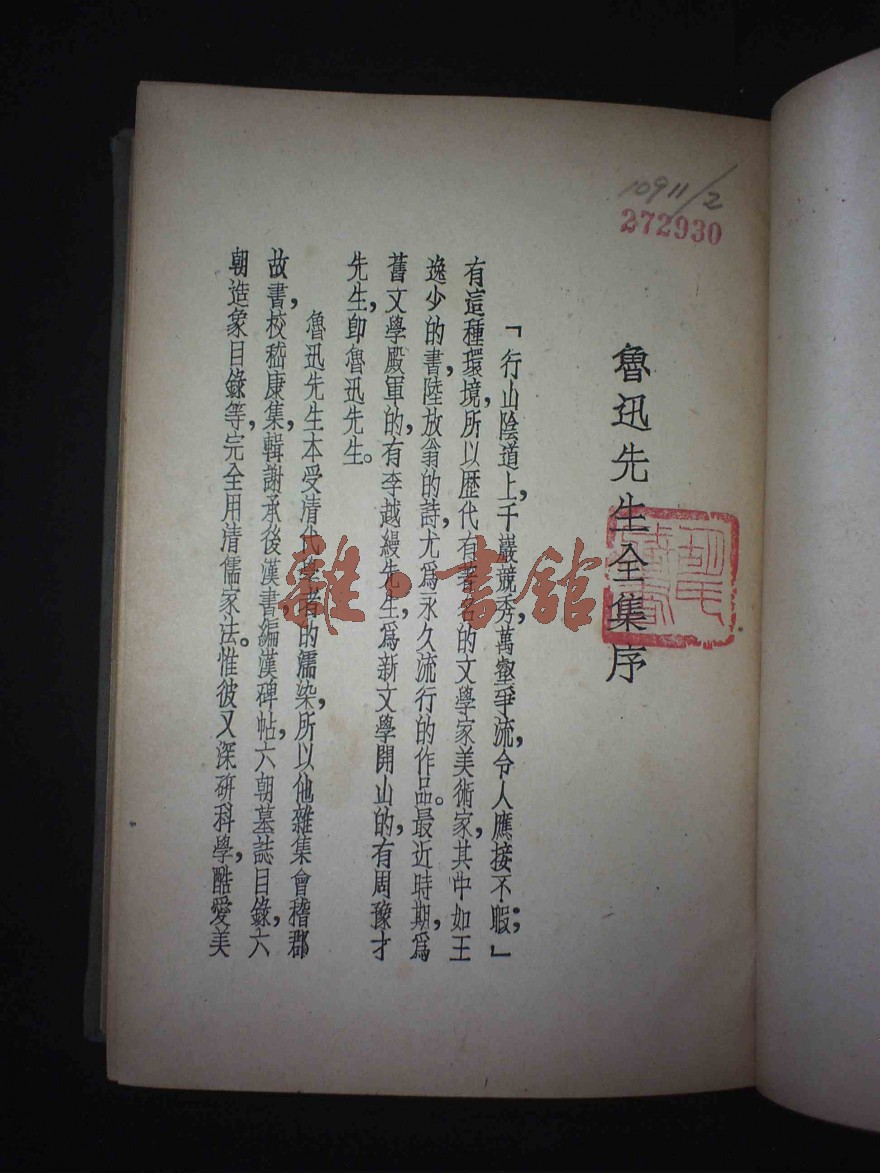 10911/2
272930
魯迅先生全集序
「行山陰道上,千巖競秀,萬壑爭流,令人應接不暇;」
有這種環境,所以歷代有著名的文學家美術家,其中如王
逸少的書,陸放翁的詩,尤爲永久流行的作品。最近時期,爲
舊文學殿軍的,有李越縵先生,爲新文學開山的,有周豫才
先生,即魯迅先生。
魯迅先生本受清代學者的濡染,所以他雜集會稽郡
故書,校嵇康集,輯謝承後漢書,編漢碑帖,六朝墓誌目錄,六
朝造象目錄等,完全用清儒家法。惟彼又深研科學,酷愛美
雜·書館